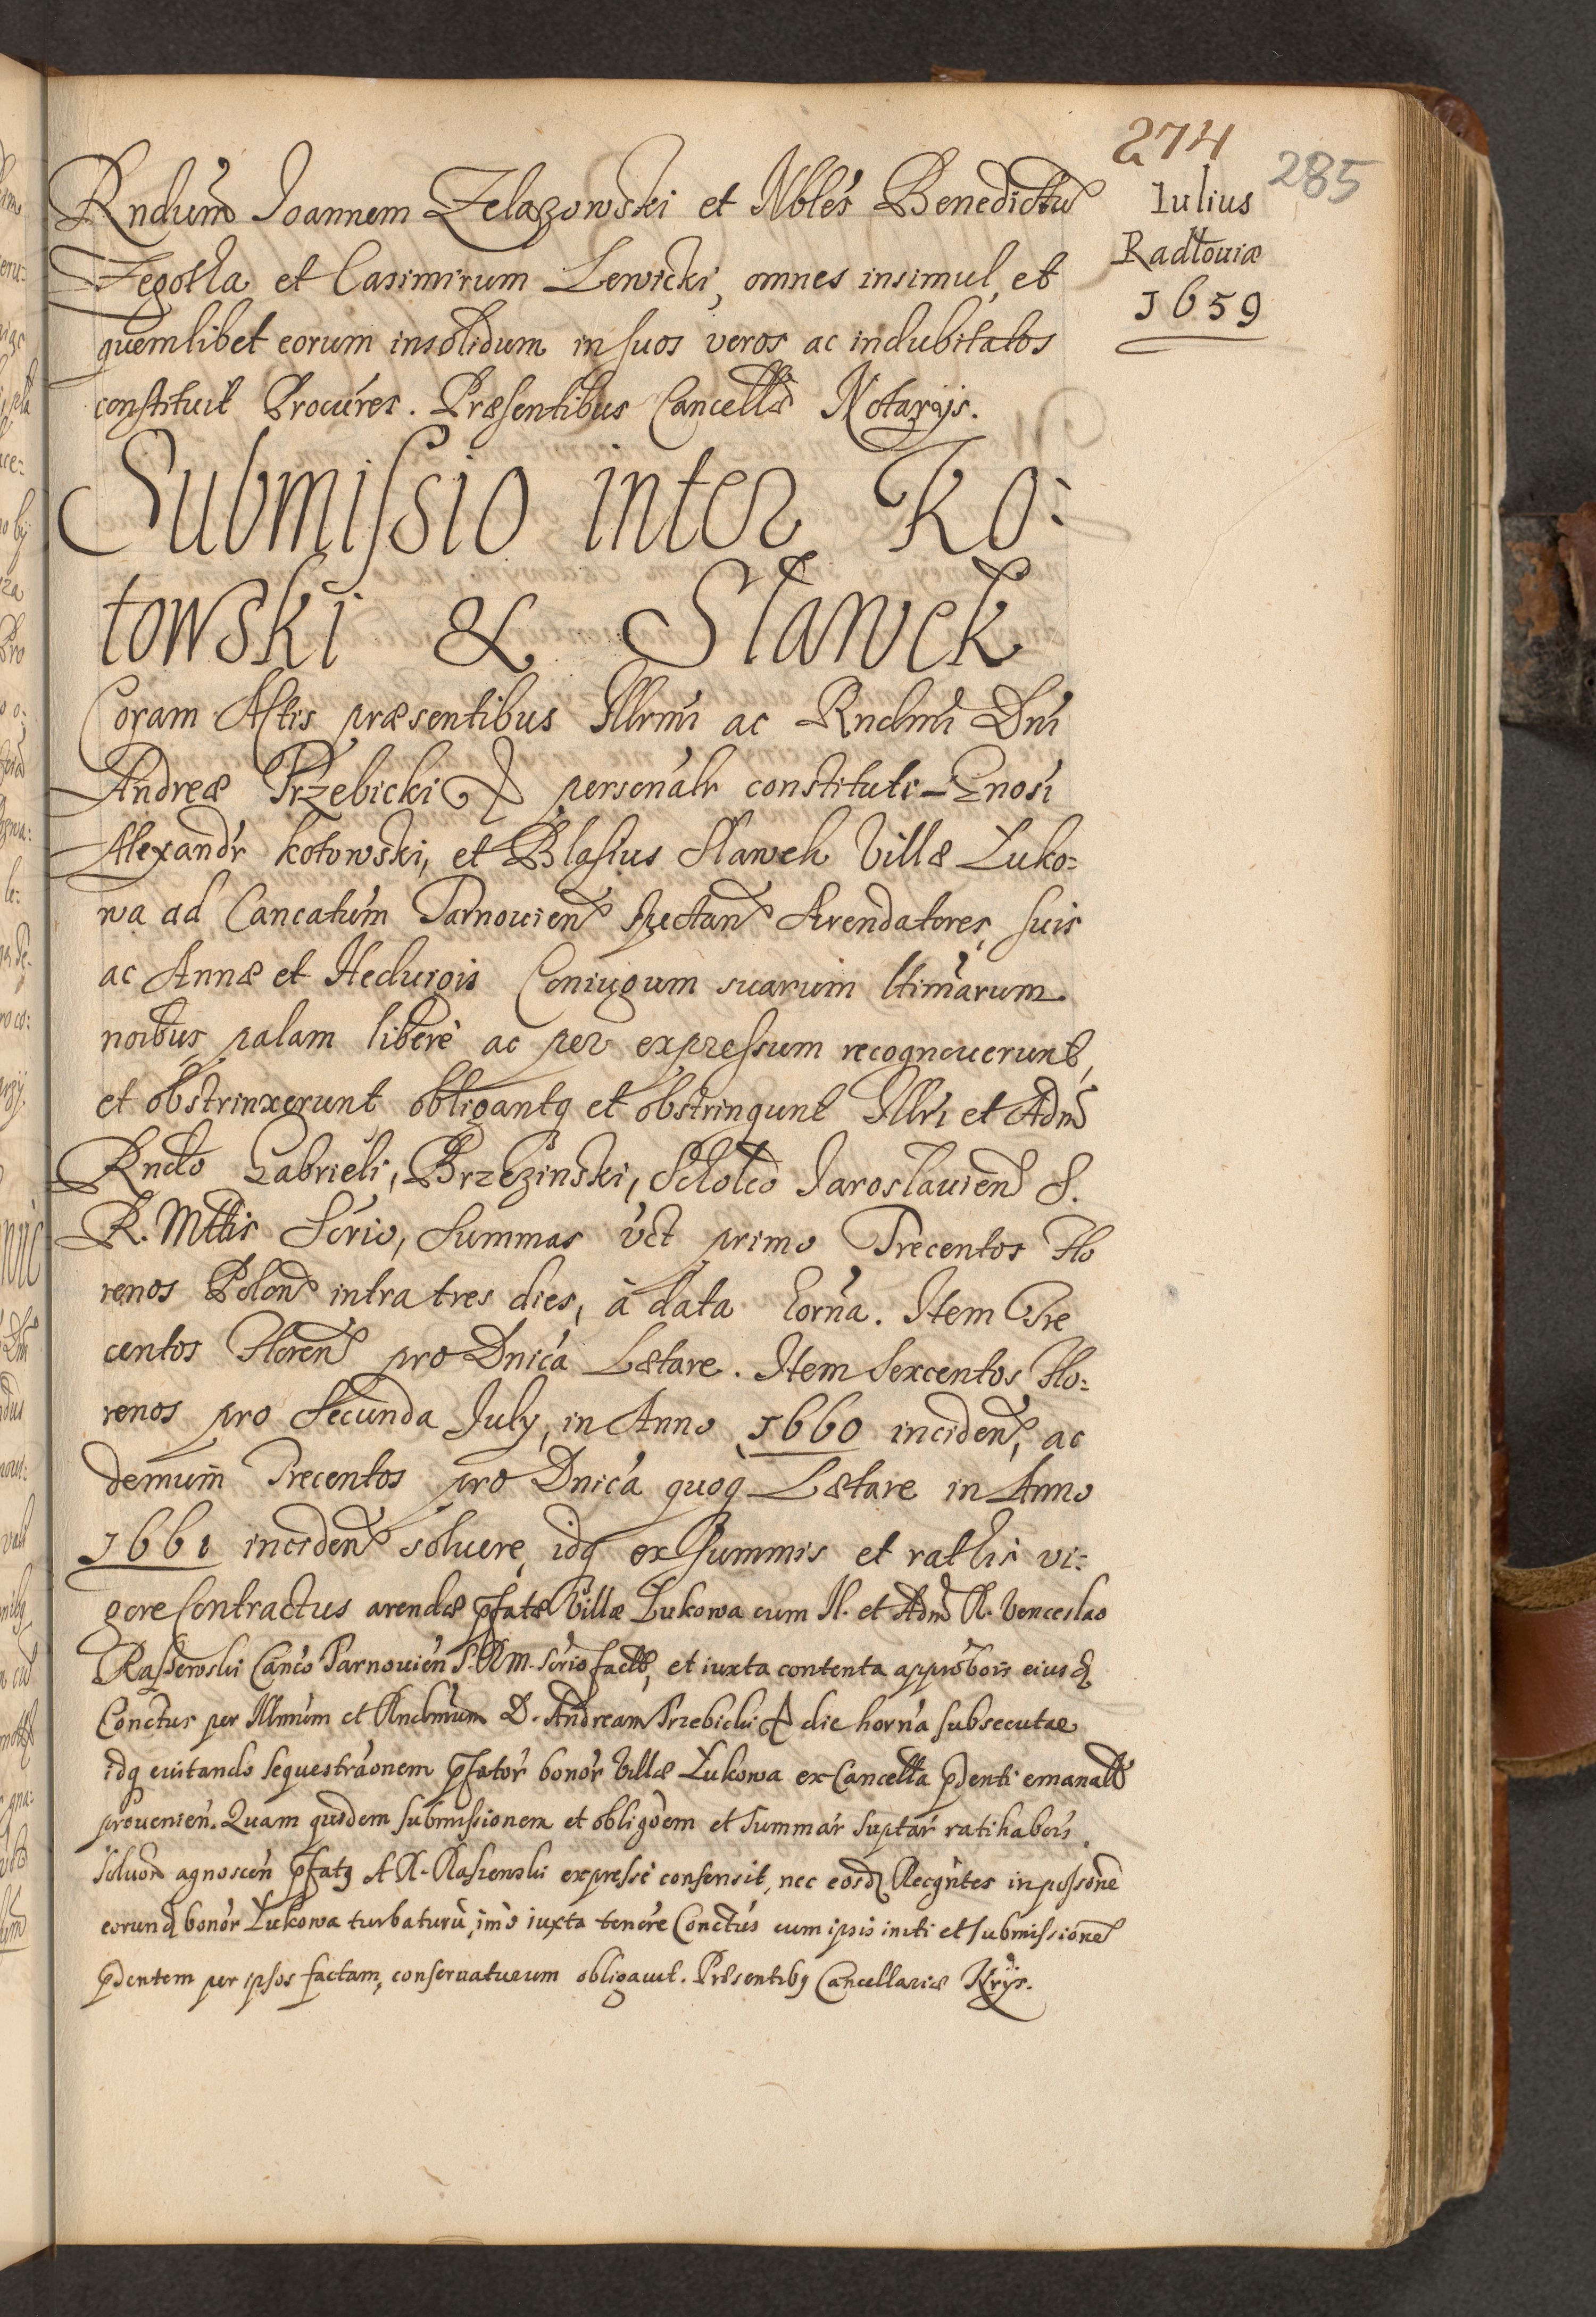 274
285
Iulius
Radłoviæ
1659
Rndum̃ Joannem Zelazowski et Nbles Benedictũ
Zegotta et Casimirum Lewicki, omnes insimul, et
quemlibet eorum insolidum in suos veros ac indubitatos
constituit Procures. Præsentibus Cancellæ Notarijs.
Submissio inter Ko:
towski & Sławek
Coram Actis præsentibus Illrmi ac Rndmi Dni
Andreæ Trzebicki personalr constituti Gnosi
Alexandr Kotowski, et Blasius Slawek Villæ Luko:
wa ad Cancatum Tarnovien̄ spectan̄ Arendatores, suis
ac Annæ et Hedvigis Coniugum suarum ltimarum
noıbus palam liberè ac per expressum recognoverunt,
et obstrinxerunt obligantq et obstringunt Illri et Adm̄
Rndo Gabrieli, Brzezinski, Schol̃co Jaroslavien̄ S.
R. Mttis Scrio, Summas vct primo Trecentos Flo
renos Polon̄ intra tres dies, à data horna. Item Tre
centos Floren̄ pro Dnica Lætare. Item Sexcentos Flo:
renos pro Secunda July, in Anno 1660 inciden̄, ac
demum Trecentos pro Dnica quoq Lætare in Anno
1661 inciden̄ solvere, idq ex Summis et rathis vi:
gore Contractus arendæ pfatæ Villæ Łukowa cum Il. et Adm̄ R. Venceslao
Raszewski Canco Tarnovien S. R M. Scrio, et iuxta contenta approbois eiusd
Conctus per Illmum et Rndmum D. Andream Trzebicki die horna subsecutæ
idq evitando sequestraonem pfator bonor Villæ Łukowa ex Cancella pdenti emanalr
provenien. Quam quidem submissionem et obligoem et Summar suptar ratihabois
solvon agnoscen pfatq A R. Raszewski expressè consensit, nec eosd Recgntes in possone
eorund bonor Łukowa turbaturu, imo iuxta tenore Conctus cum ipsis initi et submissione
pdentem per ipsos factam, conservaturum obligavit. Præsentibq Cancellariæ Nrijs.